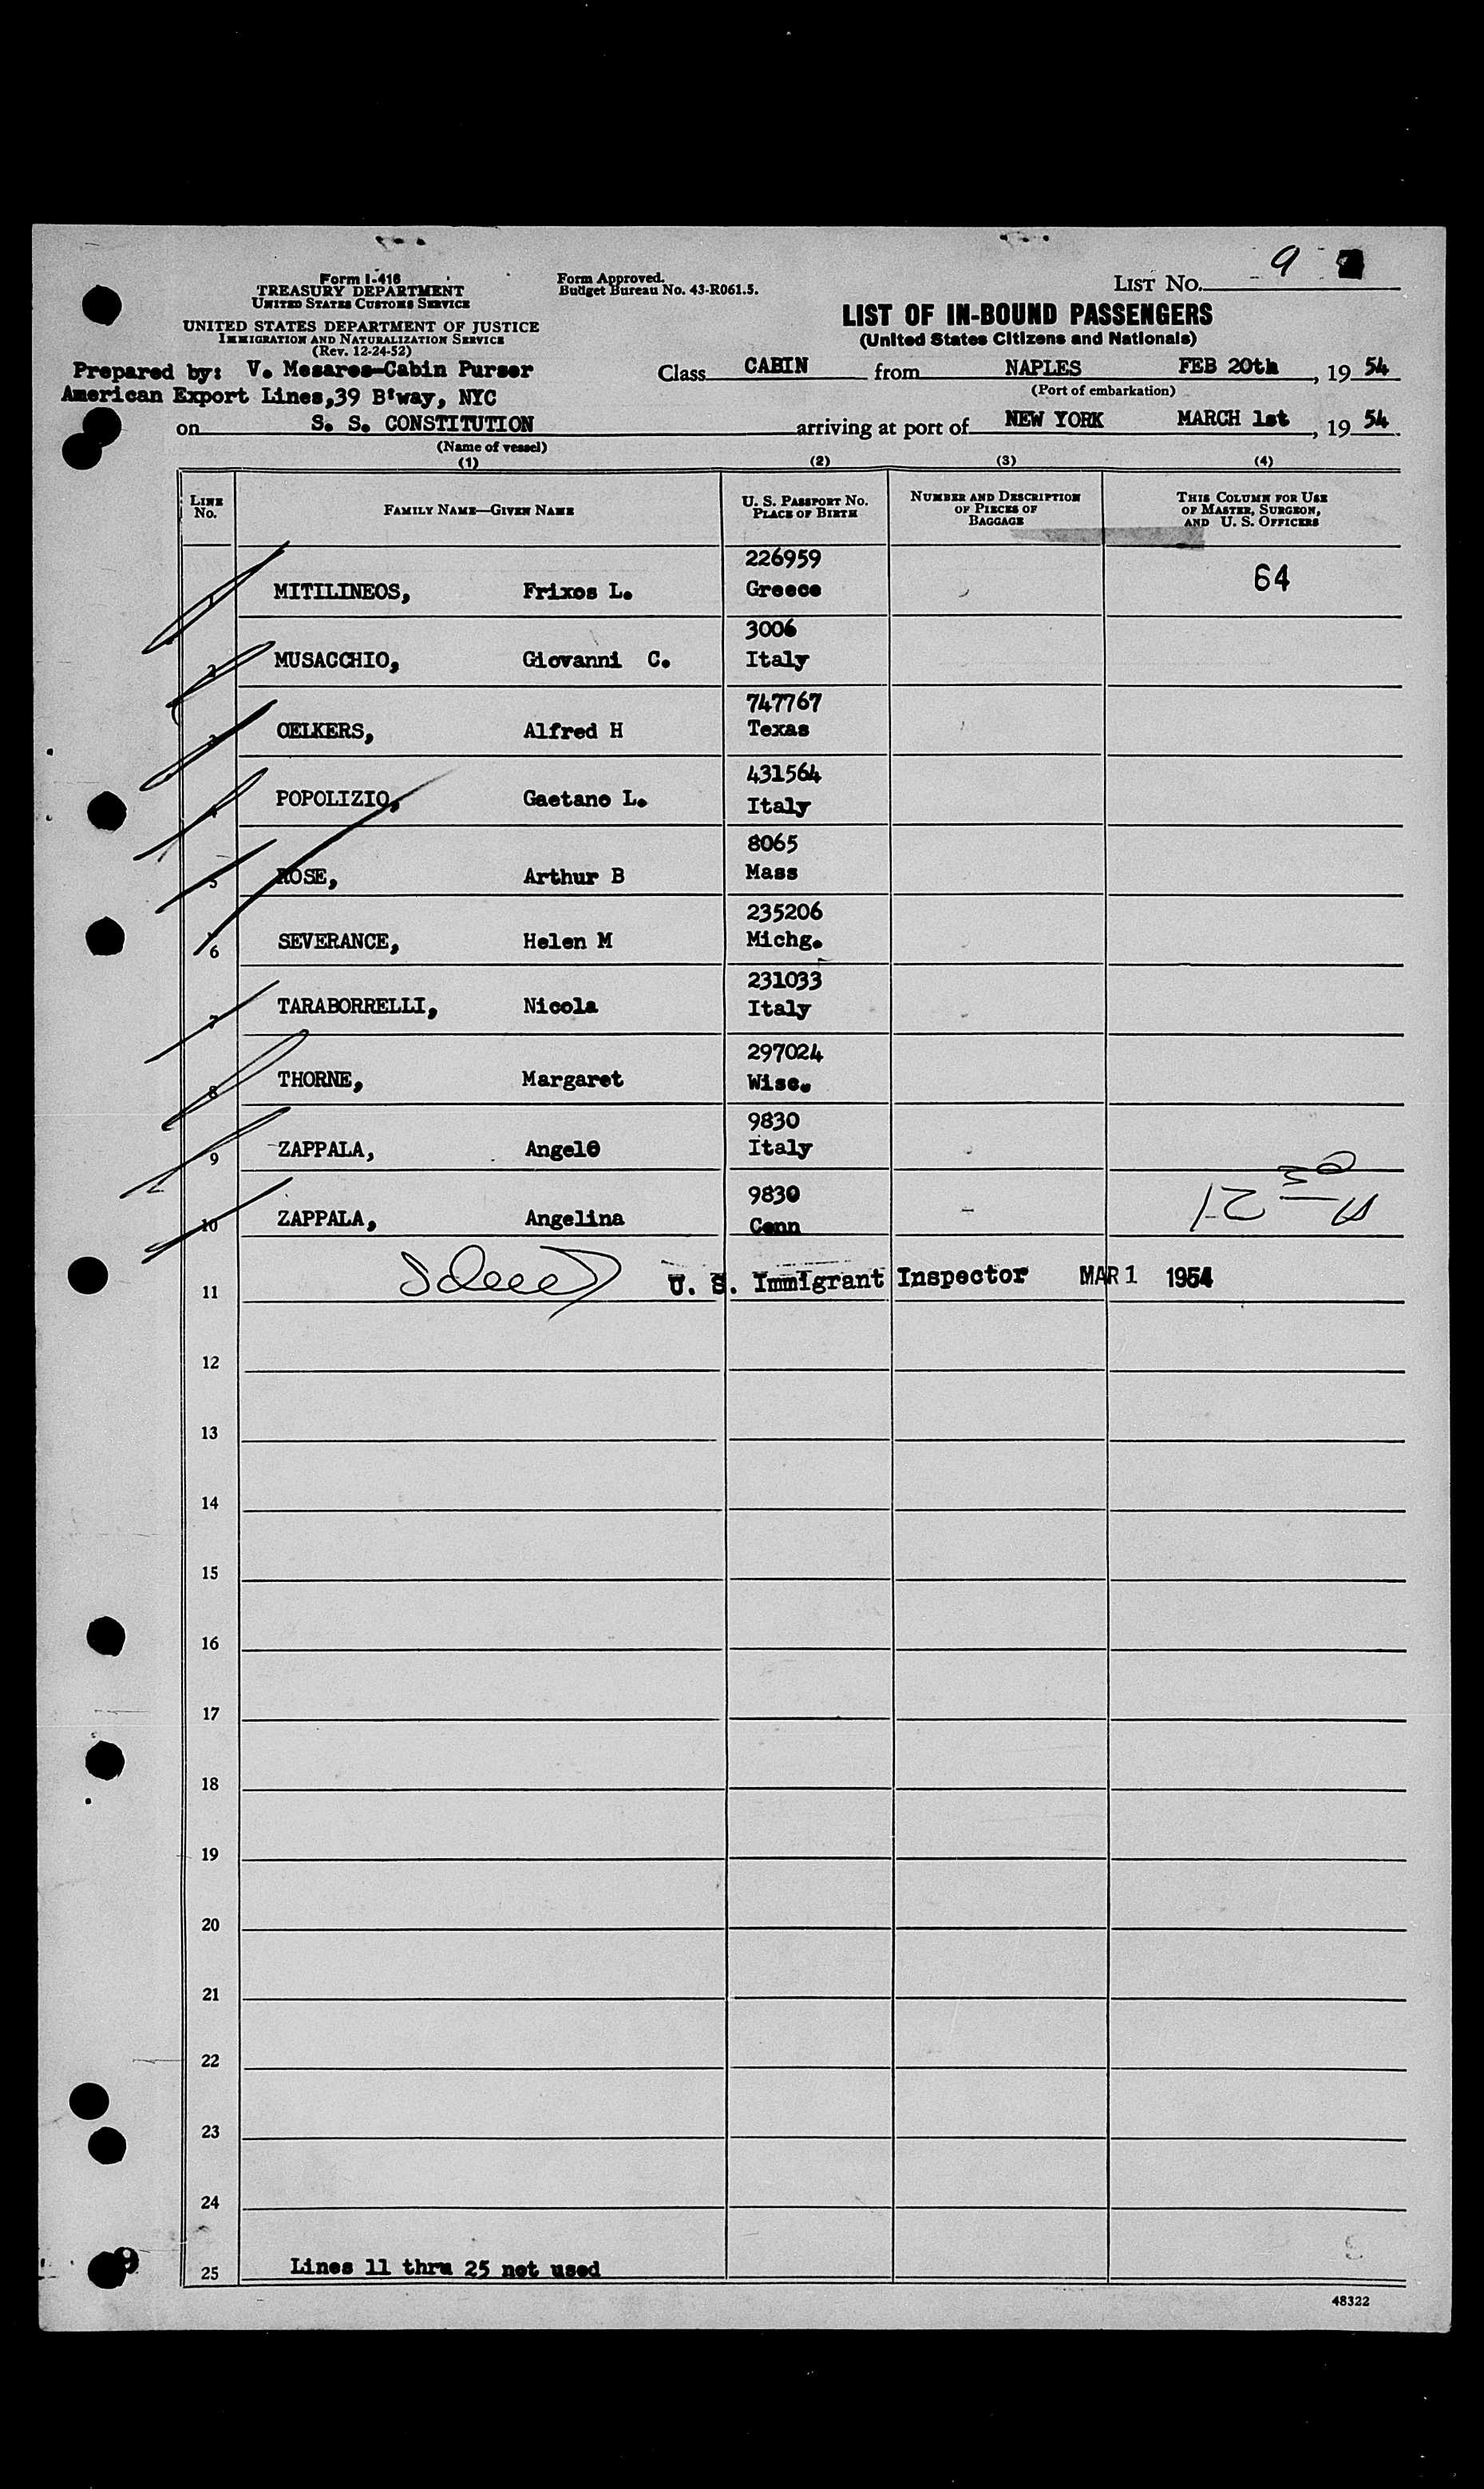 Form I-416
TREASURY DEPARTMENT
UNITED STATES CUSTOMS SERVICE
UNITED STATES DEPARTMENT OF JUSTICE
IMMIGRATION AND NATURALIZATION SERVICE
(Rev. 12-24-52)
Form Approved.
Budget Bureau No. 43-R061.5.
LIST No. 9
LIST OF IN-BOUND PASSENGERS
(United States Citizens and Nationals)
Prepared by: V. Mesaros-Cabin Purser
American Export Lines,39 B'way, NYC
Class CABIN from NAPLES FEB 20th, 19 54
(Port of embarkation)
on S. S. CONSTITUTION arriving at port of NEW YORK MARCH 1st, 19 54
(Name of vessel)
(1) (2) (3) (4)
LINE No. FAMILY NAME—GIVEN NAME U. S. PASSPORT No. PLACE OF BIRTH NUMBER AND DESCRIPTION OF PIECES OF BAGGAGE THIS COLUMN FOR USE OF MASTER, SURGEON, AND U. S. OFFICERS
226959
1 MITILINEOS, Frixos L. Greece 64
3006
2 MUSACCHIO, Giovanni C. Italy
747767
3 OELKERS, Alfred H Texas
431564
4 POPOLIZIO, Gaetano L. Italy
8065
5 ROSE, Arthur B Mass
235206
6 SEVERANCE, Helen M Michg.
231033
7 TARABORRELLI, Nicola Italy
297024
8 THORNE, Margaret Wisc.
9830
9 ZAPPALA, Angelo Italy
9830
10 ZAPPALA, Angelina Conn
11 U. S. Immigrant Inspector MAR 1 1954
12
13
14
15
16
17
18
19
20
21
22
23
24
25 Lines 11 thru 25 not used
9
48322